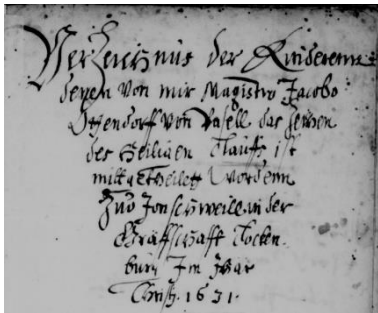 Verzeichnus der Kinderenn
denen von mir Magistro Jacobo
von Basell das
des Heiligen Tauffs ist
mittgetheilett wordenn
Zuo Jonschweill in der
Graffschafft Tocken¬
burg Im Jhar
Christi. 1631.